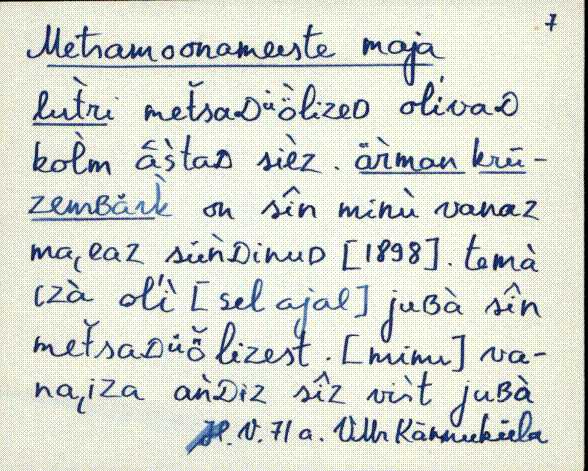 7
Metsamoonameeste maja
lut̀ri metšaᴅüö̀lizeᴅ olìvaᴅ
kol̀m âštaᴅ sièz. är̀man krü-
zemʙär̀k on sîn minù vanaz
ma,eaz sün̄̀ᴅinuᴅ [1898]. temà
izà olì [sel ajal] juʙà sîn
metšaᴅüö̀lizest. [minu] va-
na,iza an̄̀ᴅiz sîz vis̀t juʙà
V. 71 a.